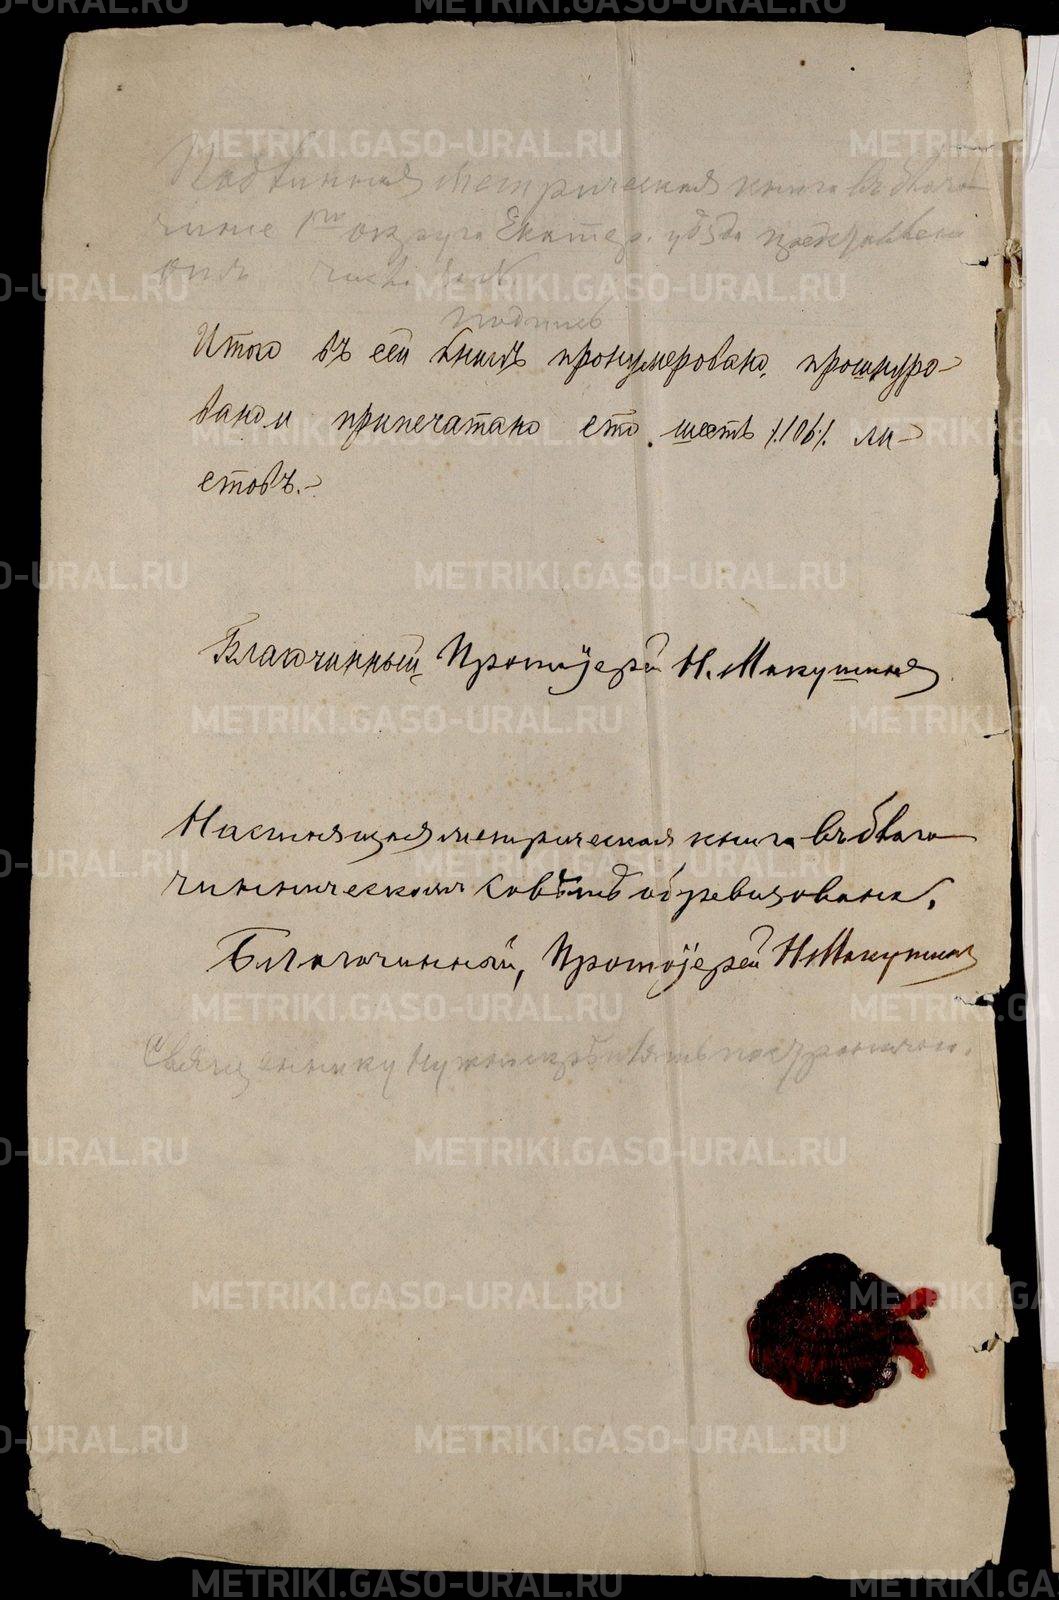 Подлинная метрическая книга въ благо-
чиніе 1го округа Екатер. уѣзда представлена
подпись
Итого въ сей книгѣ пронумеровано, прошнуро-
вано и припечатано сто шесть ⁒106⁒ ли-
стовъ.
Благочинный Протоіерей Н. Макушинъ
Настоящая метрическая книга въ благо-
чинническомъ Совѣтѣ обревизована.
Благочинный, Протоіерей Н Макушинъ
Священнику
METRIKI.GASO-URAL.RU